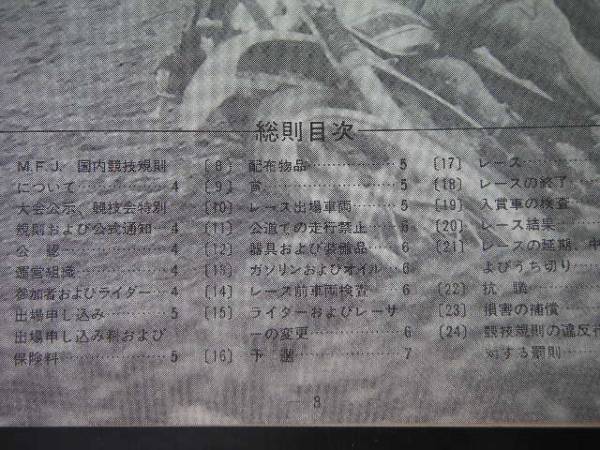 総則目次
M.F.J. 国内競技規則
について……………4
大会公示、競技会特別
規則および公式通知…4
公 認………………4
運営組織……………4
参加者およびライダー…4
出場申し込み…………5
出場申し込み料および
保険料………………5
〔8〕 配布物品……………5
〔9〕 賞……………………5
〔10〕 レース出場車両………5
〔11〕 公道での走行禁止……6
〔12〕 器具および装飾品……6
〔13〕 ガソリンおよびオイル…6
〔14〕 レース前車両検査……6
〔15〕 ライダーおよびレーサ
ーの変更……………6
〔16〕 予 選………………7
〔17〕 レース…………
〔18〕 レースの終了……
〔19〕 入賞車の検査……
〔20〕 レース結果………
〔21〕 レースの延期、中
よびうち切り……
〔22〕 抗 議…………
〔23〕 損害の補償………
〔24〕 競技規則の違反
対する罰則………
8